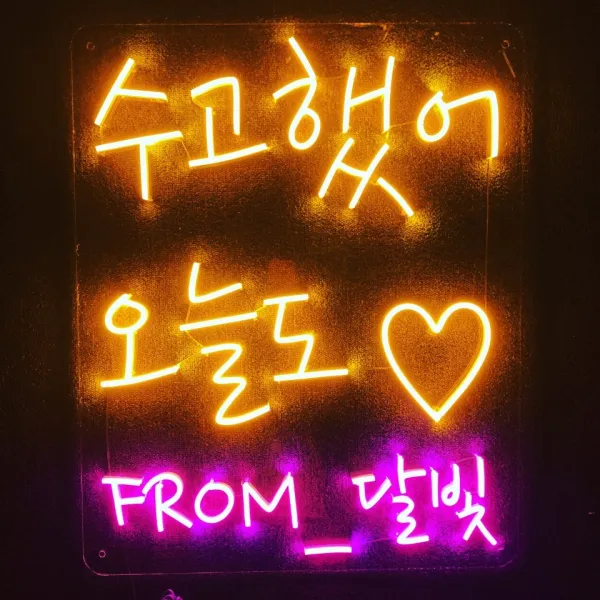 수고했어
오늘도♡
FROM_달빛